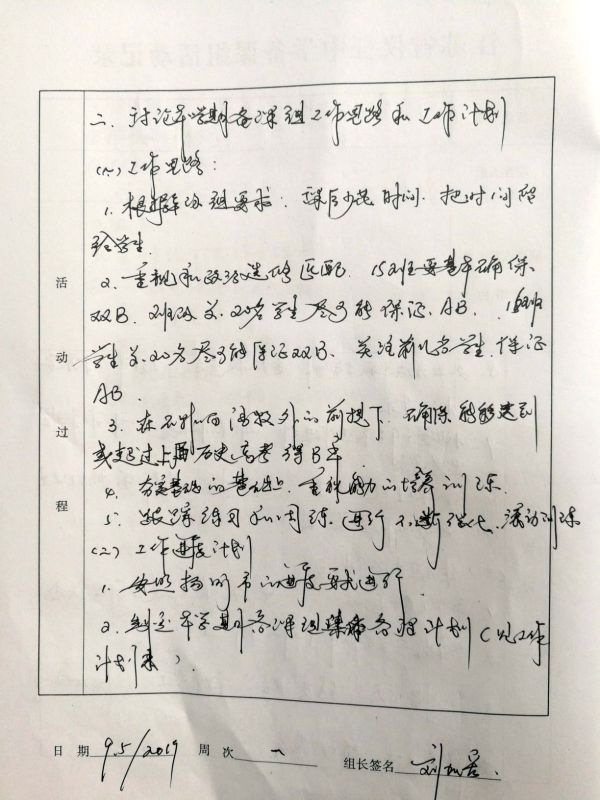 二、讨论本学期备课组工作思路和工作计划
(一)工作思路:
1. 根据年级组要求,课后少花时间,把时间留
给学生.
2. 重视和政治选修匹配, 15班要基本确保
双B, 20名学生尽可能保证AB.
学生关20名尽可能保证双B、关注前几名学生保证
AB.
3. 在不加的前提下,确保能够达到
或超过上届历史高考得B率
4. 夯实基础的基础上,重视能力的培养训练.
5. 跟踪练习和周练,进行不断强化、滚动训练
(二)工作进度计划
1. 按照扬州市的进度要求进行
2. 制定本学期备课组备课计划(见工作
计划表).
活动过程
日 期 9.5/2019 周 次 一 组长签名